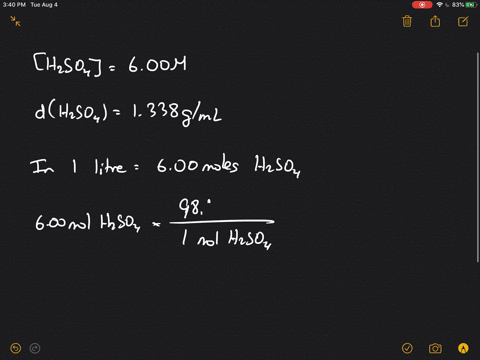 3:40 PM Tue Aug 4
83%
[H₂SO₄] = 6.00M
d(H₂SO₄) = 1.338g/mL
In 1 litre = 6.00 moles H₂SO₄
6.00 mol H₂SO₄ × 98.
1 mol H₂SO₄